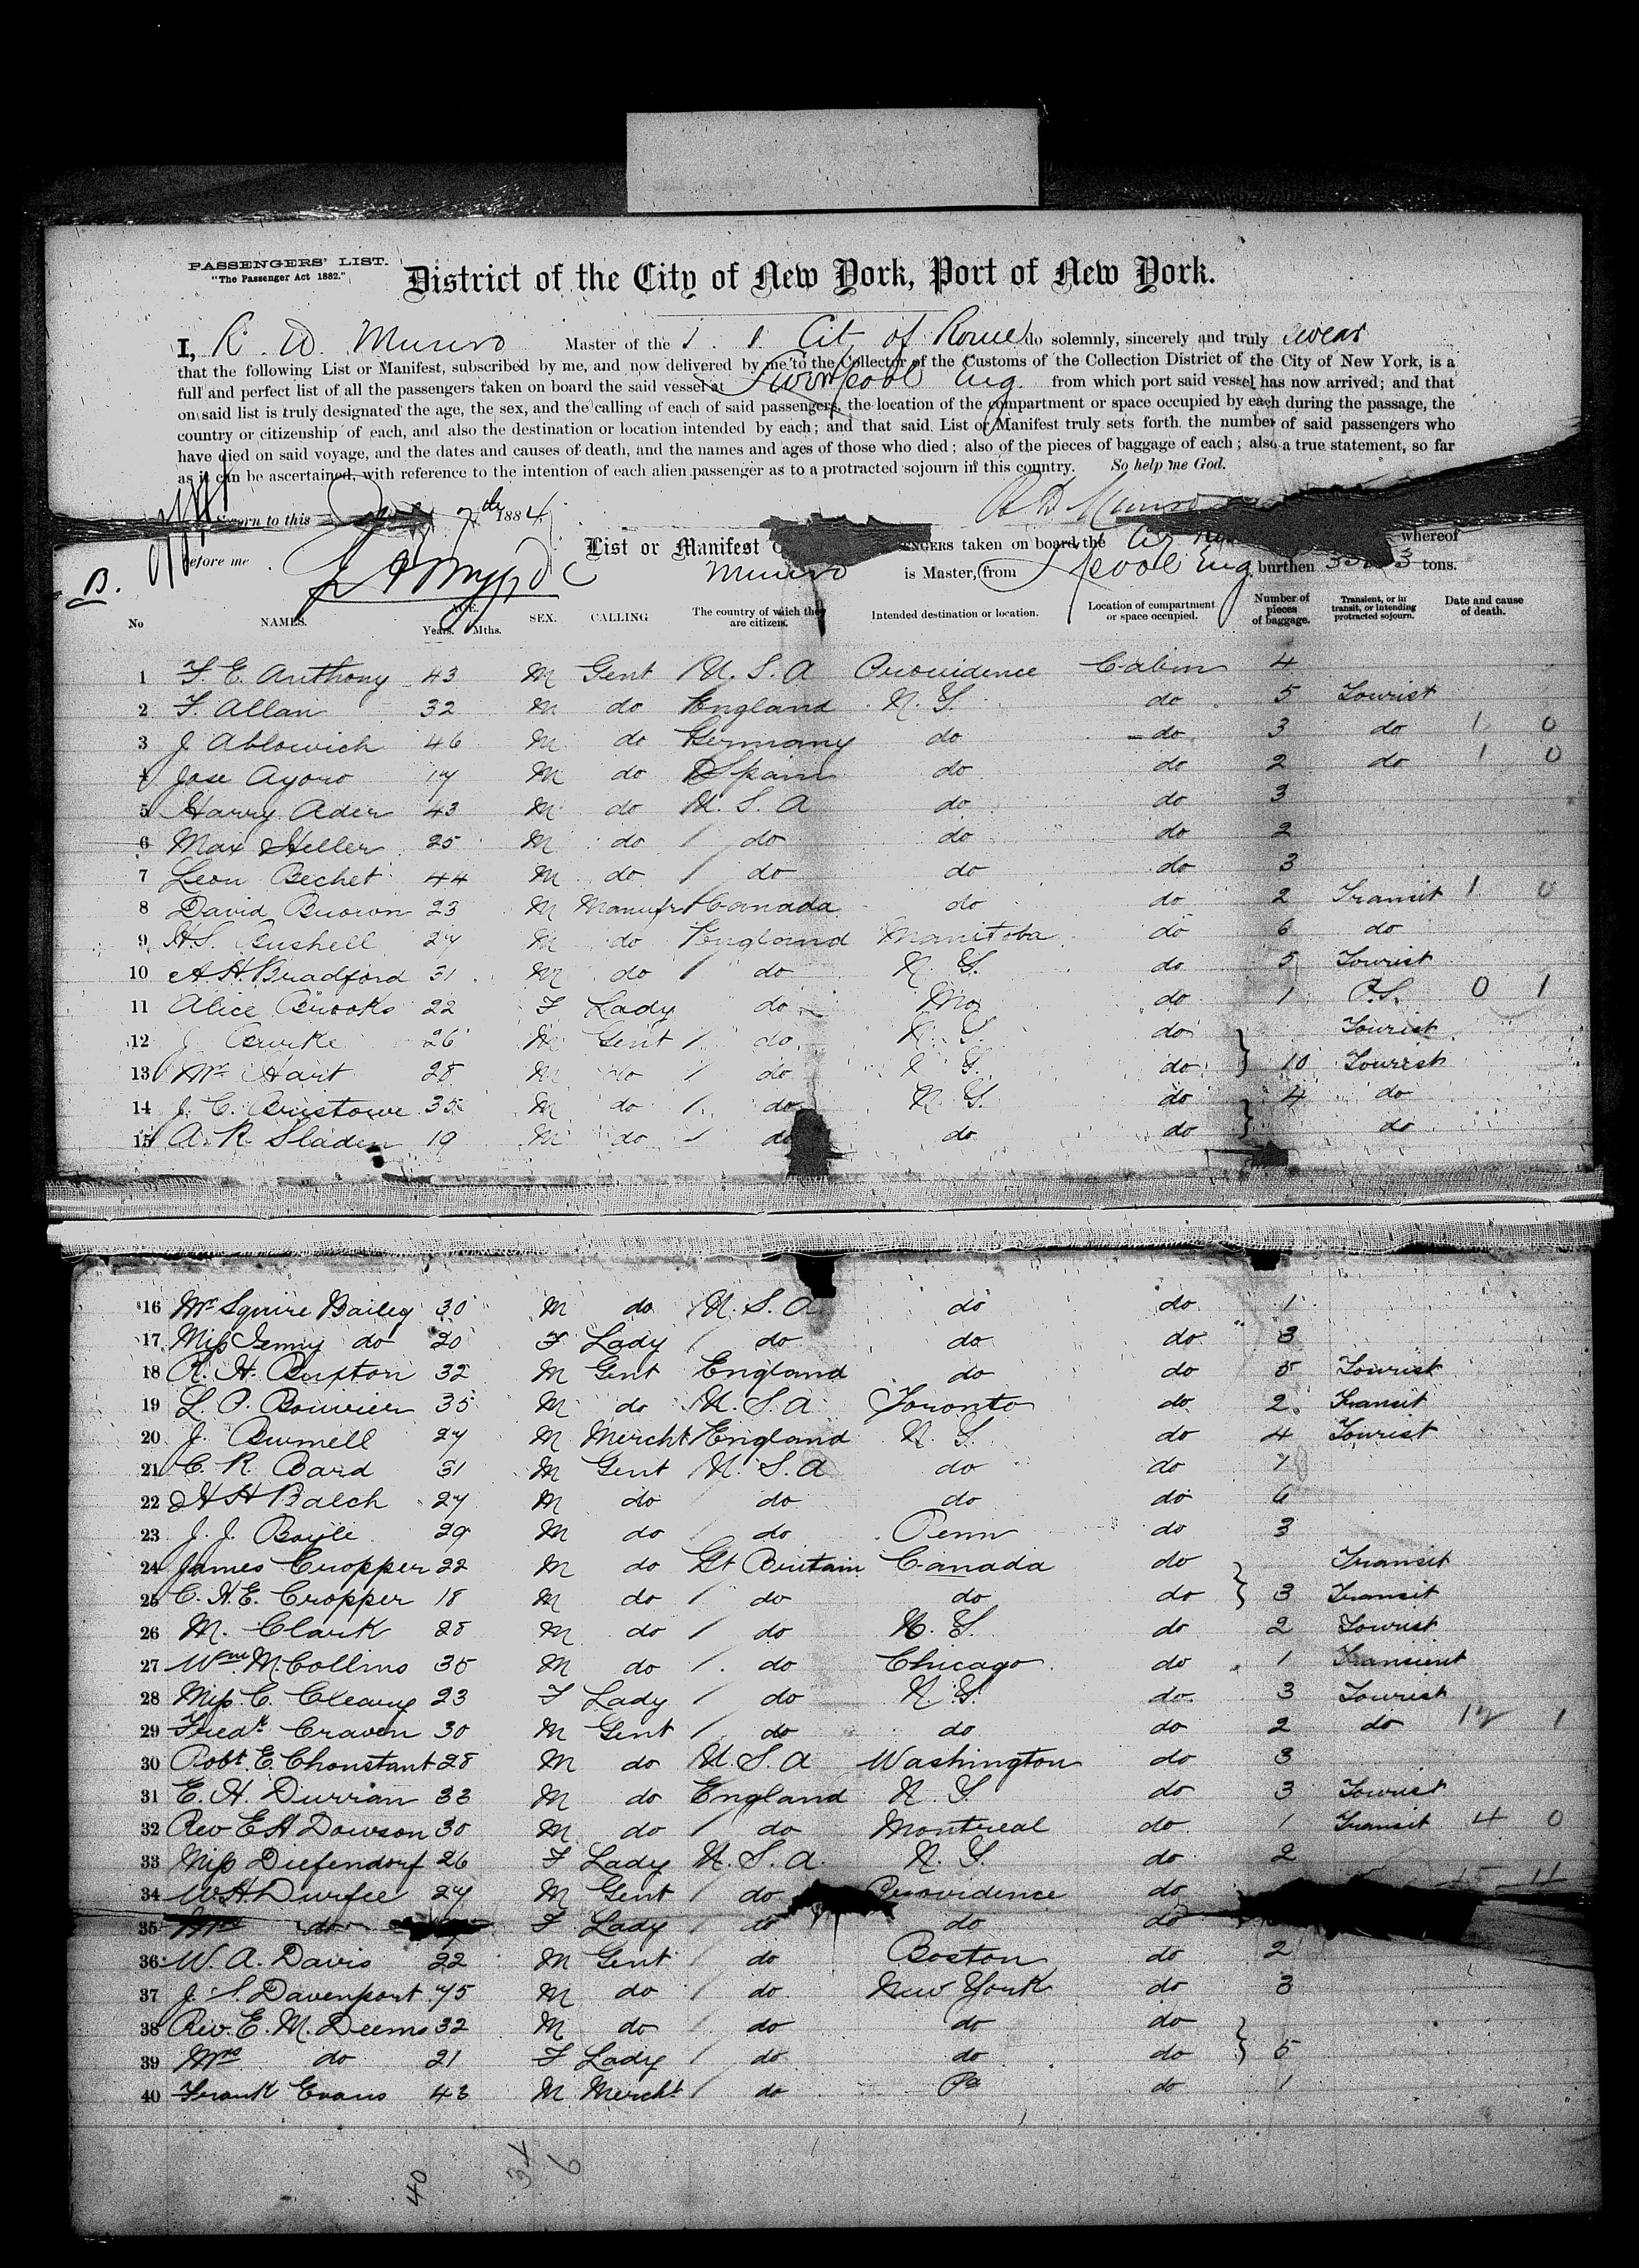 PASSENGERS' LIST.
"The Passenger Act 1882."
District of the City of New York, Port of New York.
I, R. D. Munro Master of the S. S. City of Rome do solemnly, sincerely and truly swear
that the following List or Manifest, subscribed by me, and now delivered by me to the Collector of the Customs of the Collection District of the City of New York, is a
full and perfect list of all the passengers taken on board the said vessel at Liverpool Eng. from which port said vessel has now arrived; and that
on said list is truly designated the age, the sex, and the calling of each of said passengers, the location of the compartment or space occupied by each during the passage, the
country or citizenship of each, and also the destination or location intended by each; and that said List or Manifest truly sets forth the number of said passengers who
have died on said voyage, and the dates and causes of death, and the names and ages of those who died; also of the pieces of baggage of each; also a true statement, so far
as it can be ascertained, with reference to the intention of each alien passenger as to a protracted sojourn in this country. So help me God.
Sworn to this 7th 1884 R D Munro
List or Manifest taken on board the whereof
before me Munro is Master, from L'pool Eng burthen tons.
B.
No NAMES. AGE. Years. Mths. SEX. CALLING The country of which they are citizens. Intended destination or location. Location of compartment or space occupied. Number of pieces of baggage. Transient, or in transit, or intending protracted sojourn. Date and cause of death.
1 F. E. Anthony 43 M Gent U. S. A Providence Cabin 4
2 F. Allan 32 M do England N. Y. do 5 Tourist
3 J Ablowich 46 M do Germany do do 3 do 1 0
4 Jose Ayoro 17 M do Spain do do 2 do 1 0
5 Harry Ader 43 M do U. S. A do do 3
6 Max Heller 25 M do do do do 2
7 Leon Bechet 44 M do do do do 3
8 David Brown 23 M Manufr Canada do do 2 Transit 1 0
9 H. S. Bushell 27 M do England Manitoba do 6 do
10 A. H. Bradford 31 M do do N. Y. do 5 Tourist
11 Alice Brooks 22 F Lady do Mo do 1 P.S. 0 1
12 J Burke 26 M Gent do N. Y. do Tourist
13 Mr Hart 28 M do do Y. do 10 Tourist
14 J. C. Bristowe 35 M do do N. Y. do 4 do
15 A. R. Sladen 19 M do do do do do
16 Mr Squire Bailey 30 M do U. S. A do do 1
17 Miss Jenny do 20 F Lady do do do 3
18 R. H. Buxton 32 M Gent England do do 5 Tourist
19 L. P. Bouvier 35 M do U. S. A Toronto do 2 Transit
20 J. Burnell 27 M Mercht England N. Y. do 4 Tourist
21 C. R. Bard 31 M Gent U. S. A do do 1
22 H H Balch 27 M do do do do 6
23 J. J. Boyle 29 M do do Penn do 3
24 James Cropper 22 M do Gt Britain Canada do Transit
25 C. H. E. Cropper 18 M do do do do 3 Transit
26 M. Clark 28 M do do N. Y. do 2 Tourist
27 Wm. M. Collins 35 M do do Chicago do 1 Transient
28 Miss C. Cleary 23 F Lady do N. Y. do 3 Tourist
29 Fredk Craven 30 M Gent do do do 2 do 12 1
30 Robt. E. Chonstant 28 M do U. S. A Washington do 3
31 E. H. Durran 33 M do England N. Y. do 3 Tourist
32 Rev E H Dowson 30 M do do Montreal do 1 Transit 4 0
33 Miss Diefendorf 26 F Lady U. S. A. N. Y. do 2
34 W. H Durfee 27 M Gent do Providence do 15 11
35 Mrs do F Lady do do do
36 W. A. Davis 22 M Gent do Boston do 2
37 J. S. Davenport 45 M do do New York do 3
38 Rev. E. M. Deems 32 M do do do do
39 Mrs do 21 F Lady do do do 5
40 Frank Evans 43 M Mercht do Pa do 1
40 34 6